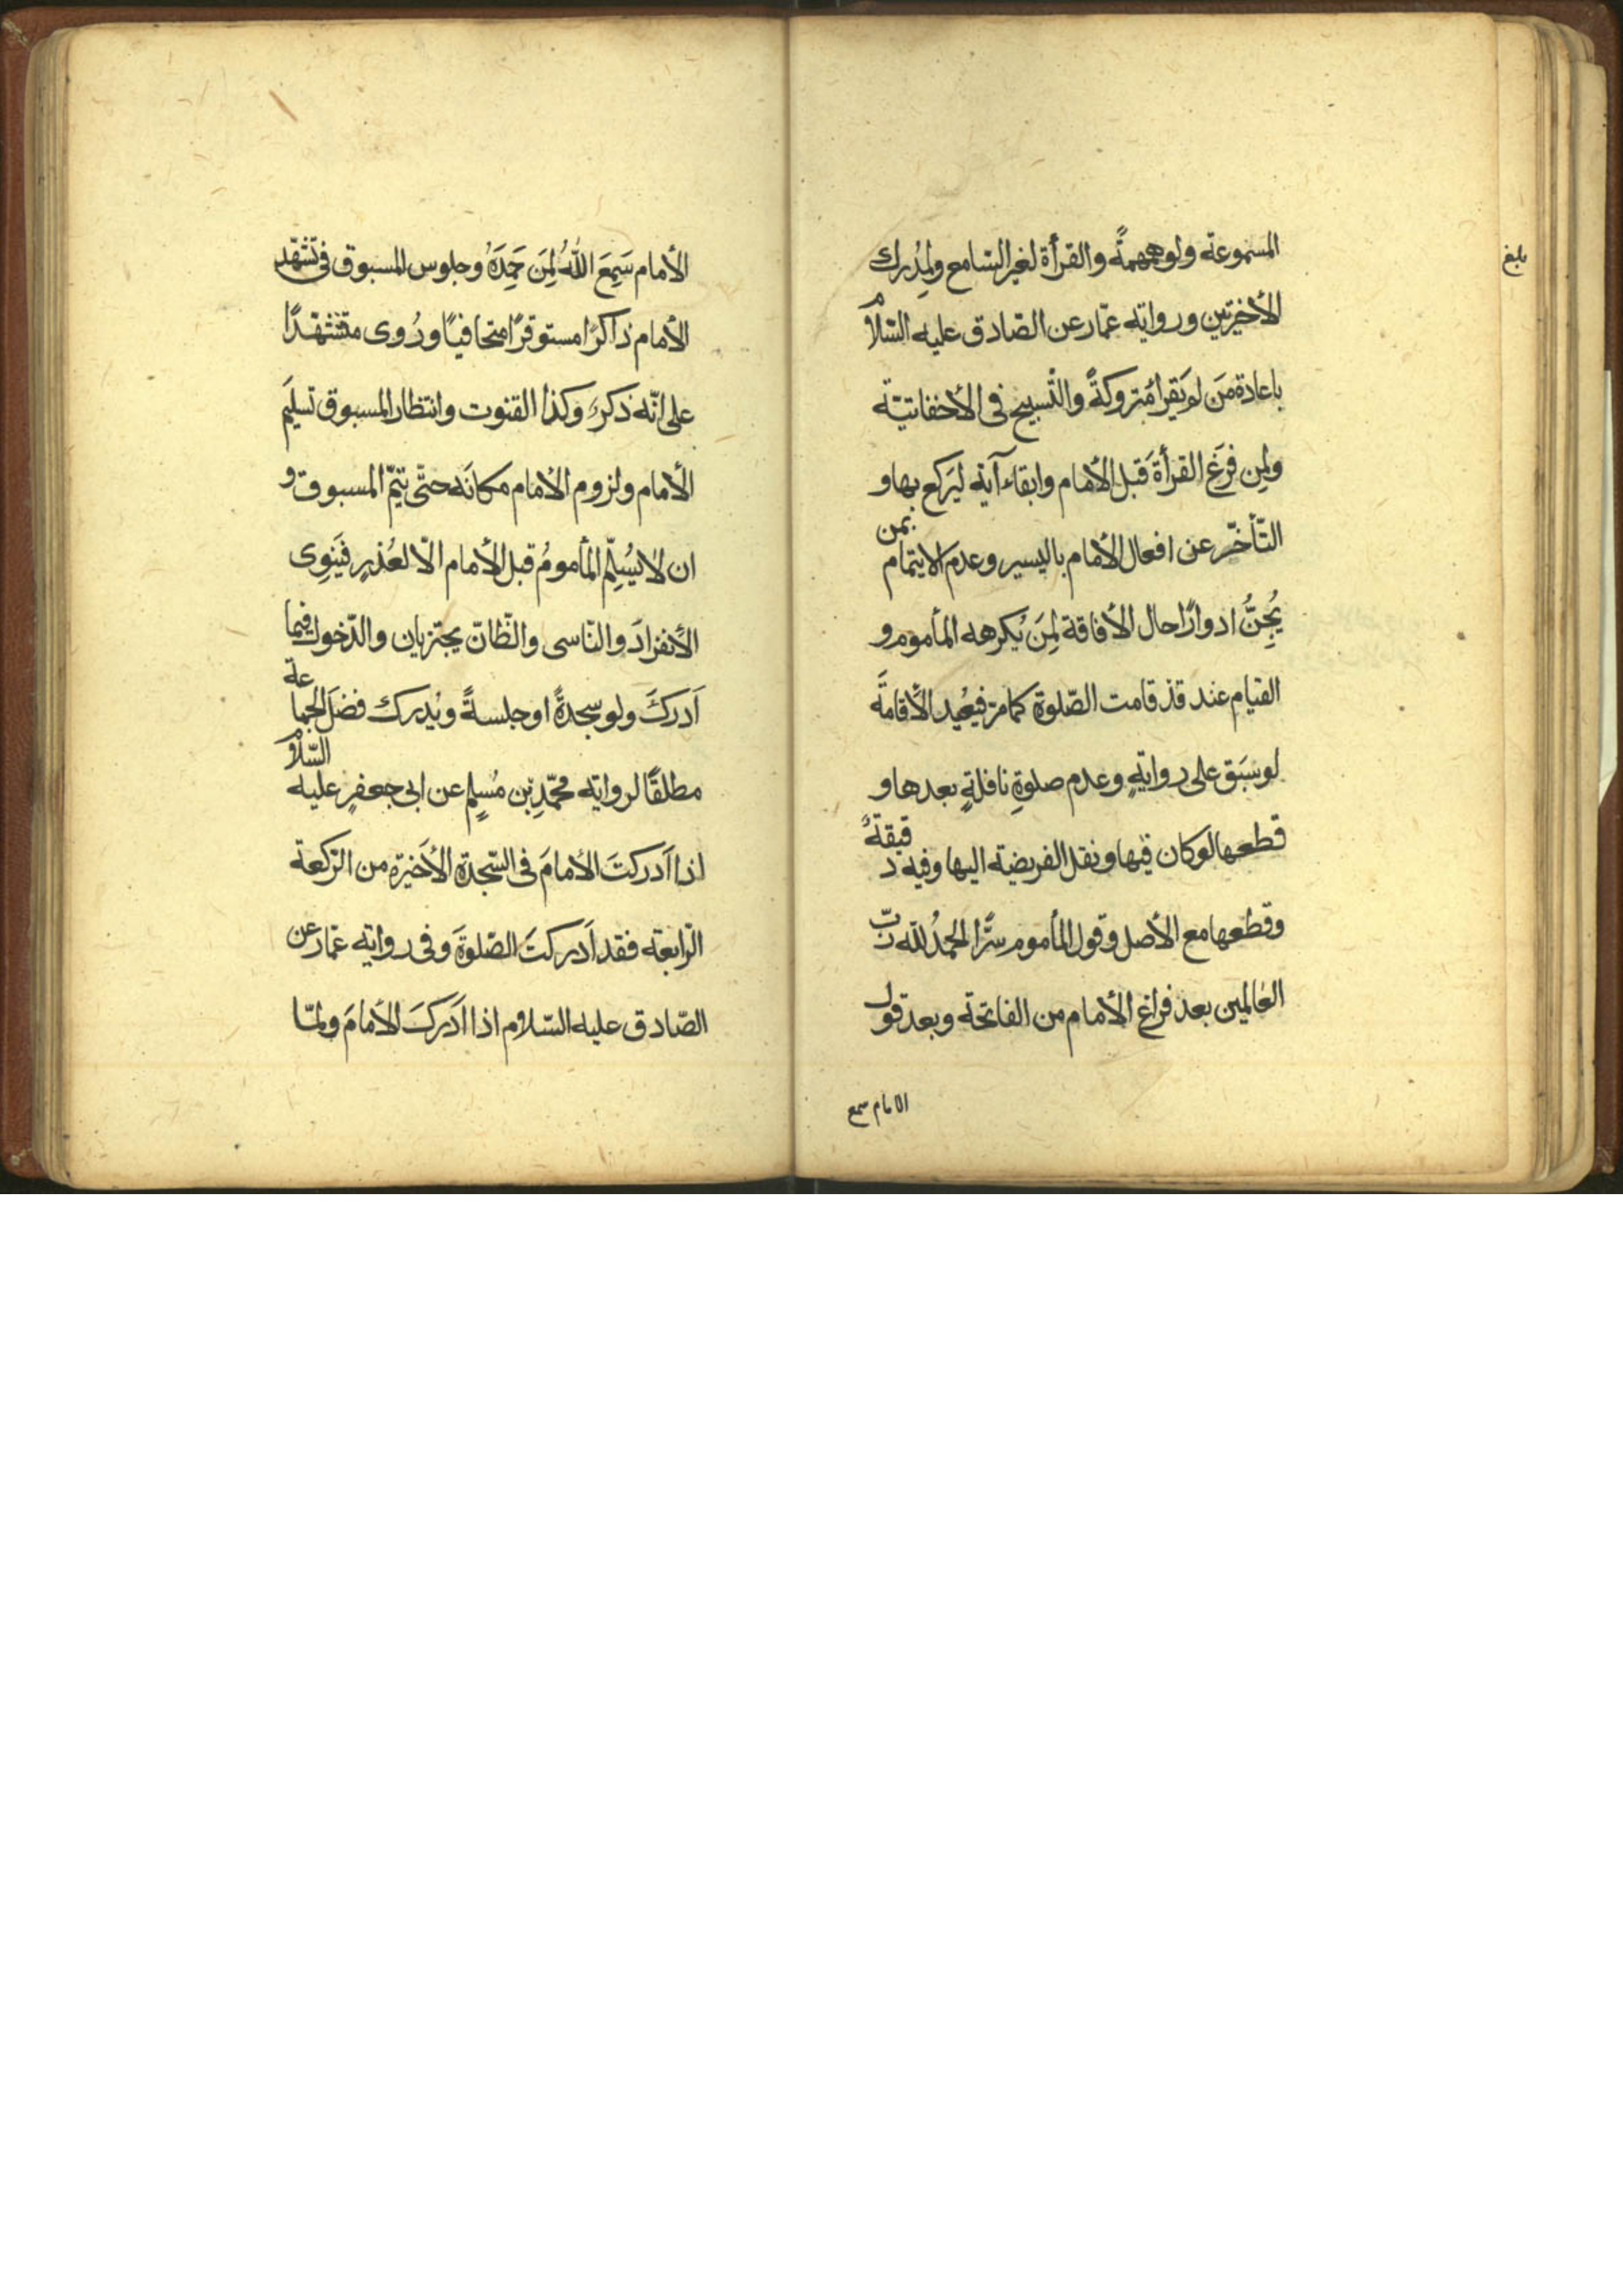 المسموعة ولو همهمةً والقرأة لغير السّامع ولمُدرك
الأخيرتين ورواية عمّار عن الصّادق عليه السّلام
باعادة مَن لم يَقرأ متروكةٌ والتّسبيح فى الأخفاتيّة
ولمِن فرَغ القرأةَ قبل الأمام وابقاء آية ليَركع بها و
التّأخّر عن افعال الأمام باليسير وعدم الايتمام بمن
يُجَنُّ ادوارًا حال الأفاقة لمِنَ يُكرهه المأموم و
القيام عند قد قامت الصّلوة كما مرّ فيعُيد الأقامةَ
لو سَبَق على روايةٍ وعدم صلوةِ نافلةٍ بعدها و
قطعها لو كان فيها ونقل الفريضة اليها وفيه دقيقةٌ
وقطعها مع الأصل وقول المأموم سرًّا الحمدُ للّه ربّ
العٰالمين بعد فراغ الأمام من الفاتحة وبعد قول
الامام سمع
بلغ
الأمام سَمِعَ اللّٰهُ لِمَن حَمِدَهُ وجلوس المسبوق فى تشهّد
الأمام ذاكرًا مستوفزًا متجافيًا ورُوى متشهّدًا
على انّه ذكرٌ وكذا القنوت وانتظار المسبوق تسليَم
الأمام ولزوم الأمام مكانَه حتّى يتمّ المسبوق و
ان لا يُسلِّم المأمومُ قبل الأمام الّا لعُذرٍ فيَنوِى
الأنفرادَ والنّاسى والظّانّ يجتزيان والدّخول فيما
اَدركَ ولو سجدةً او جلسةً ويُدرك فضلَ الجماعة
مطلقًا لرواية محمّدِ بن مُسلِمٍ عن ابى جعفرٍ عليه السّلام
اذا اَدركتَ الأمامَ فى السّجدة الأَخيرة من الرّكعة
الرّابعة فقد اَدركتَ الصّلوةَ وفى رواية عمّار عن
الصّادق عليه السّلام اذا اَدركَ الأمامَ ولمّا